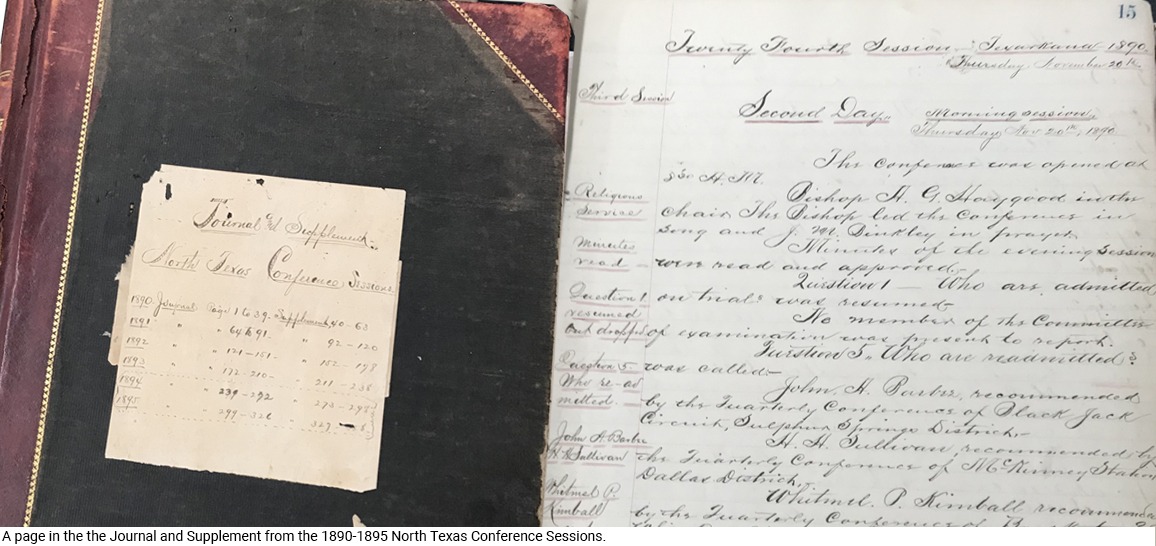 Journal and Supplement.
North Texas Conference Sessions
1890 Journal Page 1 to 39 - Supplement 40 - 63
1891 " " 64 to 91 " 92 - 120
1892 " " 121 - 151 " 152 - 178
1893 " " 172 - 210 " 211 - 238
1894 " " 239 - 272 " 273 - 298
1895 " " 299 - 326 " 327 -
15
Twenty Fourth Session - Texarkana 1890.
Thursday November 20th.
Third Session
Second Day. Morning session.
Thursday Nov 20th, 1890
The conference was opened at
8 30 A. M.
Religious Bishop A. G. Haygood in the
Service chair The Bishop led the Conference in
song and J. M. Binkley in prayer.
Minutes Minutes of the evening session
read were read and approved.
Question 1 - Who are admitted
Question 1. on trial? was resumed
resumed No member of the Committee
but dropped of examination was present to report.
Question 5. Who are readmitted?
Question 5 - was called.
Who re-ad John A. Barbee, recommended
mitted. by the Quarterly Conference of Black Jack
Circuit, Sulphur Springs District.
John A Barbee H. H. Sullivan, recommended by
H. H. Sullivan the Quarterly Conference of McKinney Station
Dallas District.
Whitmel P. Whitmel. P. Kimball recommended
Kimball by the Quarterly Conference of
A page in the the Journal and Supplement from the 1890-1895 North Texas Conference Sessions.